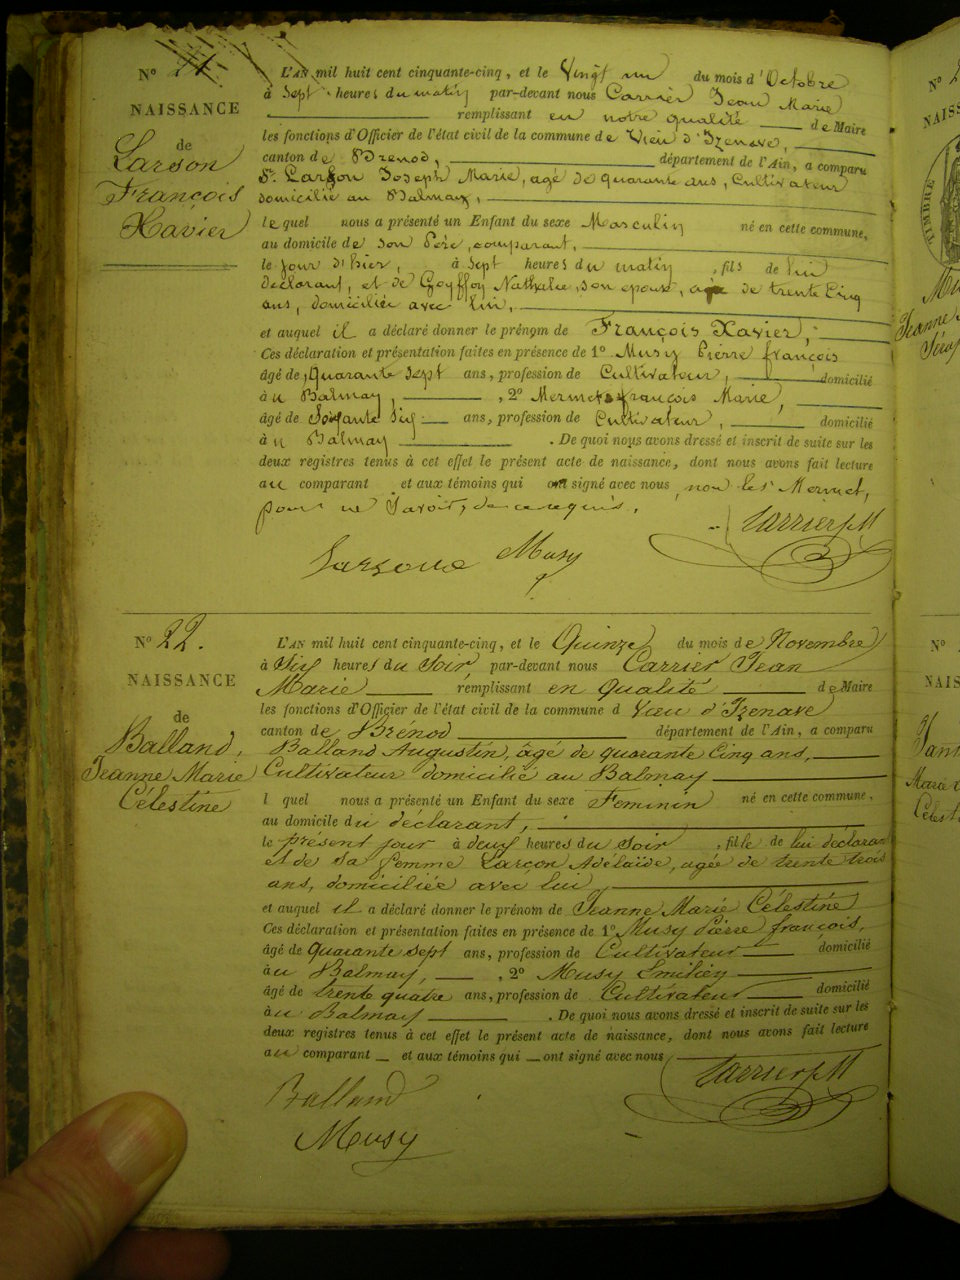 N° 21
NAISSANCE
de
Larson
François
Xavier
L'AN mil huit cent cinquante-cinq, et le Vingt un du mois d'Octobre
à Sept heures du matin par-devant nous Carrier Jean Marie
remplissant en notre qualité de Maire
les fonctions d'Officier de l'état civil de la commune de Vieu d'Izenave,
canton de Brenod, département de l'Ain, a comparu
Sr. Larson Joseph Marie, agé de quarante ans, Cultivateur
domicilié au Balmay,
lequel nous a présenté un Enfant du sexe Masculin né en cette commune,
au domicile de son Père, comparant,
le jour d'hier, à Sept heures du matin, fils de lui
déclarant, et de Goyffon Nathalie, son epouse, agée de trente Cinq
ans, domiciliée avec lui,
et auquel il a déclaré donner le prénom de François Xavier,
Ces déclaration et présentation faites en présence de 1° Musy Pierre françois
âgé de Quarante Sept ans, profession de Cultivateur, domicilié
à u Balmay, 2° Mermet françois Marie,
âgé de Soixante Six ans, profession de Cultivateur, domicilié
à u Balmay . De quoi nous avons dressé et inscrit de suite sur les
deux registres tenus à cet effet le présent acte de naissance, dont nous avons fait lecture
au comparant et aux témoins qui ont signé avec nous, non les Mermet,
pour ne Savoir, de ce requis.
Carrier J M
Musy
N° 22.
NAISSANCE
de
Balland,
Jeanne Marie
Célestine
L'AN mil huit cent cinquante-cinq, et le Quinze du mois de Novembre
à Six heures du Soir par-devant nous Carrier Jean
Marie remplissant en qualité de Maire
les fonctions d'Officier de l'état civil de la commune d Vieu d'Izenave
canton de Brénod département de l'Ain, a comparu
Balland Augustin, âgé de quarante Cinq ans,
Cultivateur domicilié au Balmay
l quel nous a présenté un Enfant du sexe Feminin né en cette commune,
au domicile du déclarant,
le présent jour à deux heures du Soir, fille de lui déclarant
et de Sa femme Larçon Adelaïde, agée de trente trois
ans, domiciliée avec lui,
et auquel il a déclaré donner le prénom de Jeanne Marie Célestine
Ces déclaration et présentation faites en présence de 1° Musy Pierre françois,
âgé de Quarante sept ans, profession de Cultivateur domicilié
à u Balmay, 2° Musy Emilien
âgé de trente quatre ans, profession de Cultivateur domicilié
à u Balmay . De quoi nous avons dressé et inscrit de suite sur les
deux registres tenus à cet effet le présent acte de naissance, dont nous avons fait lecture
au comparant et aux témoins qui ont signé avec nous
Carrier J M
Balland
Musy